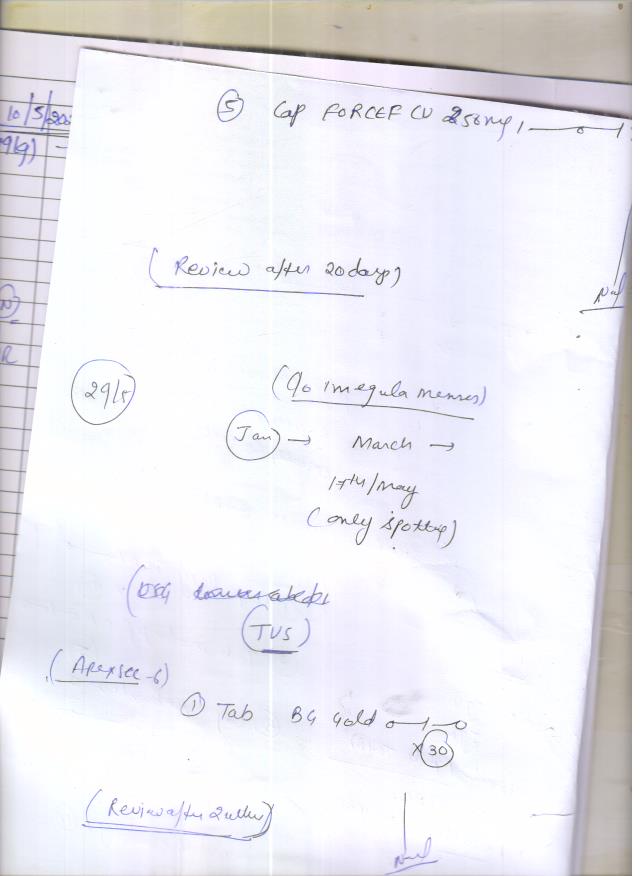 10/5/20
⑤ Cap FORCEF CV 250mg 1—o—1
(Review after 20 days)
29/5
(C/o irregula menses)
Jan → March →
17th/May
(only spotting)
(USG
(TVS)
① Tab BG Gold o—1—o
x 30
(Review after 2